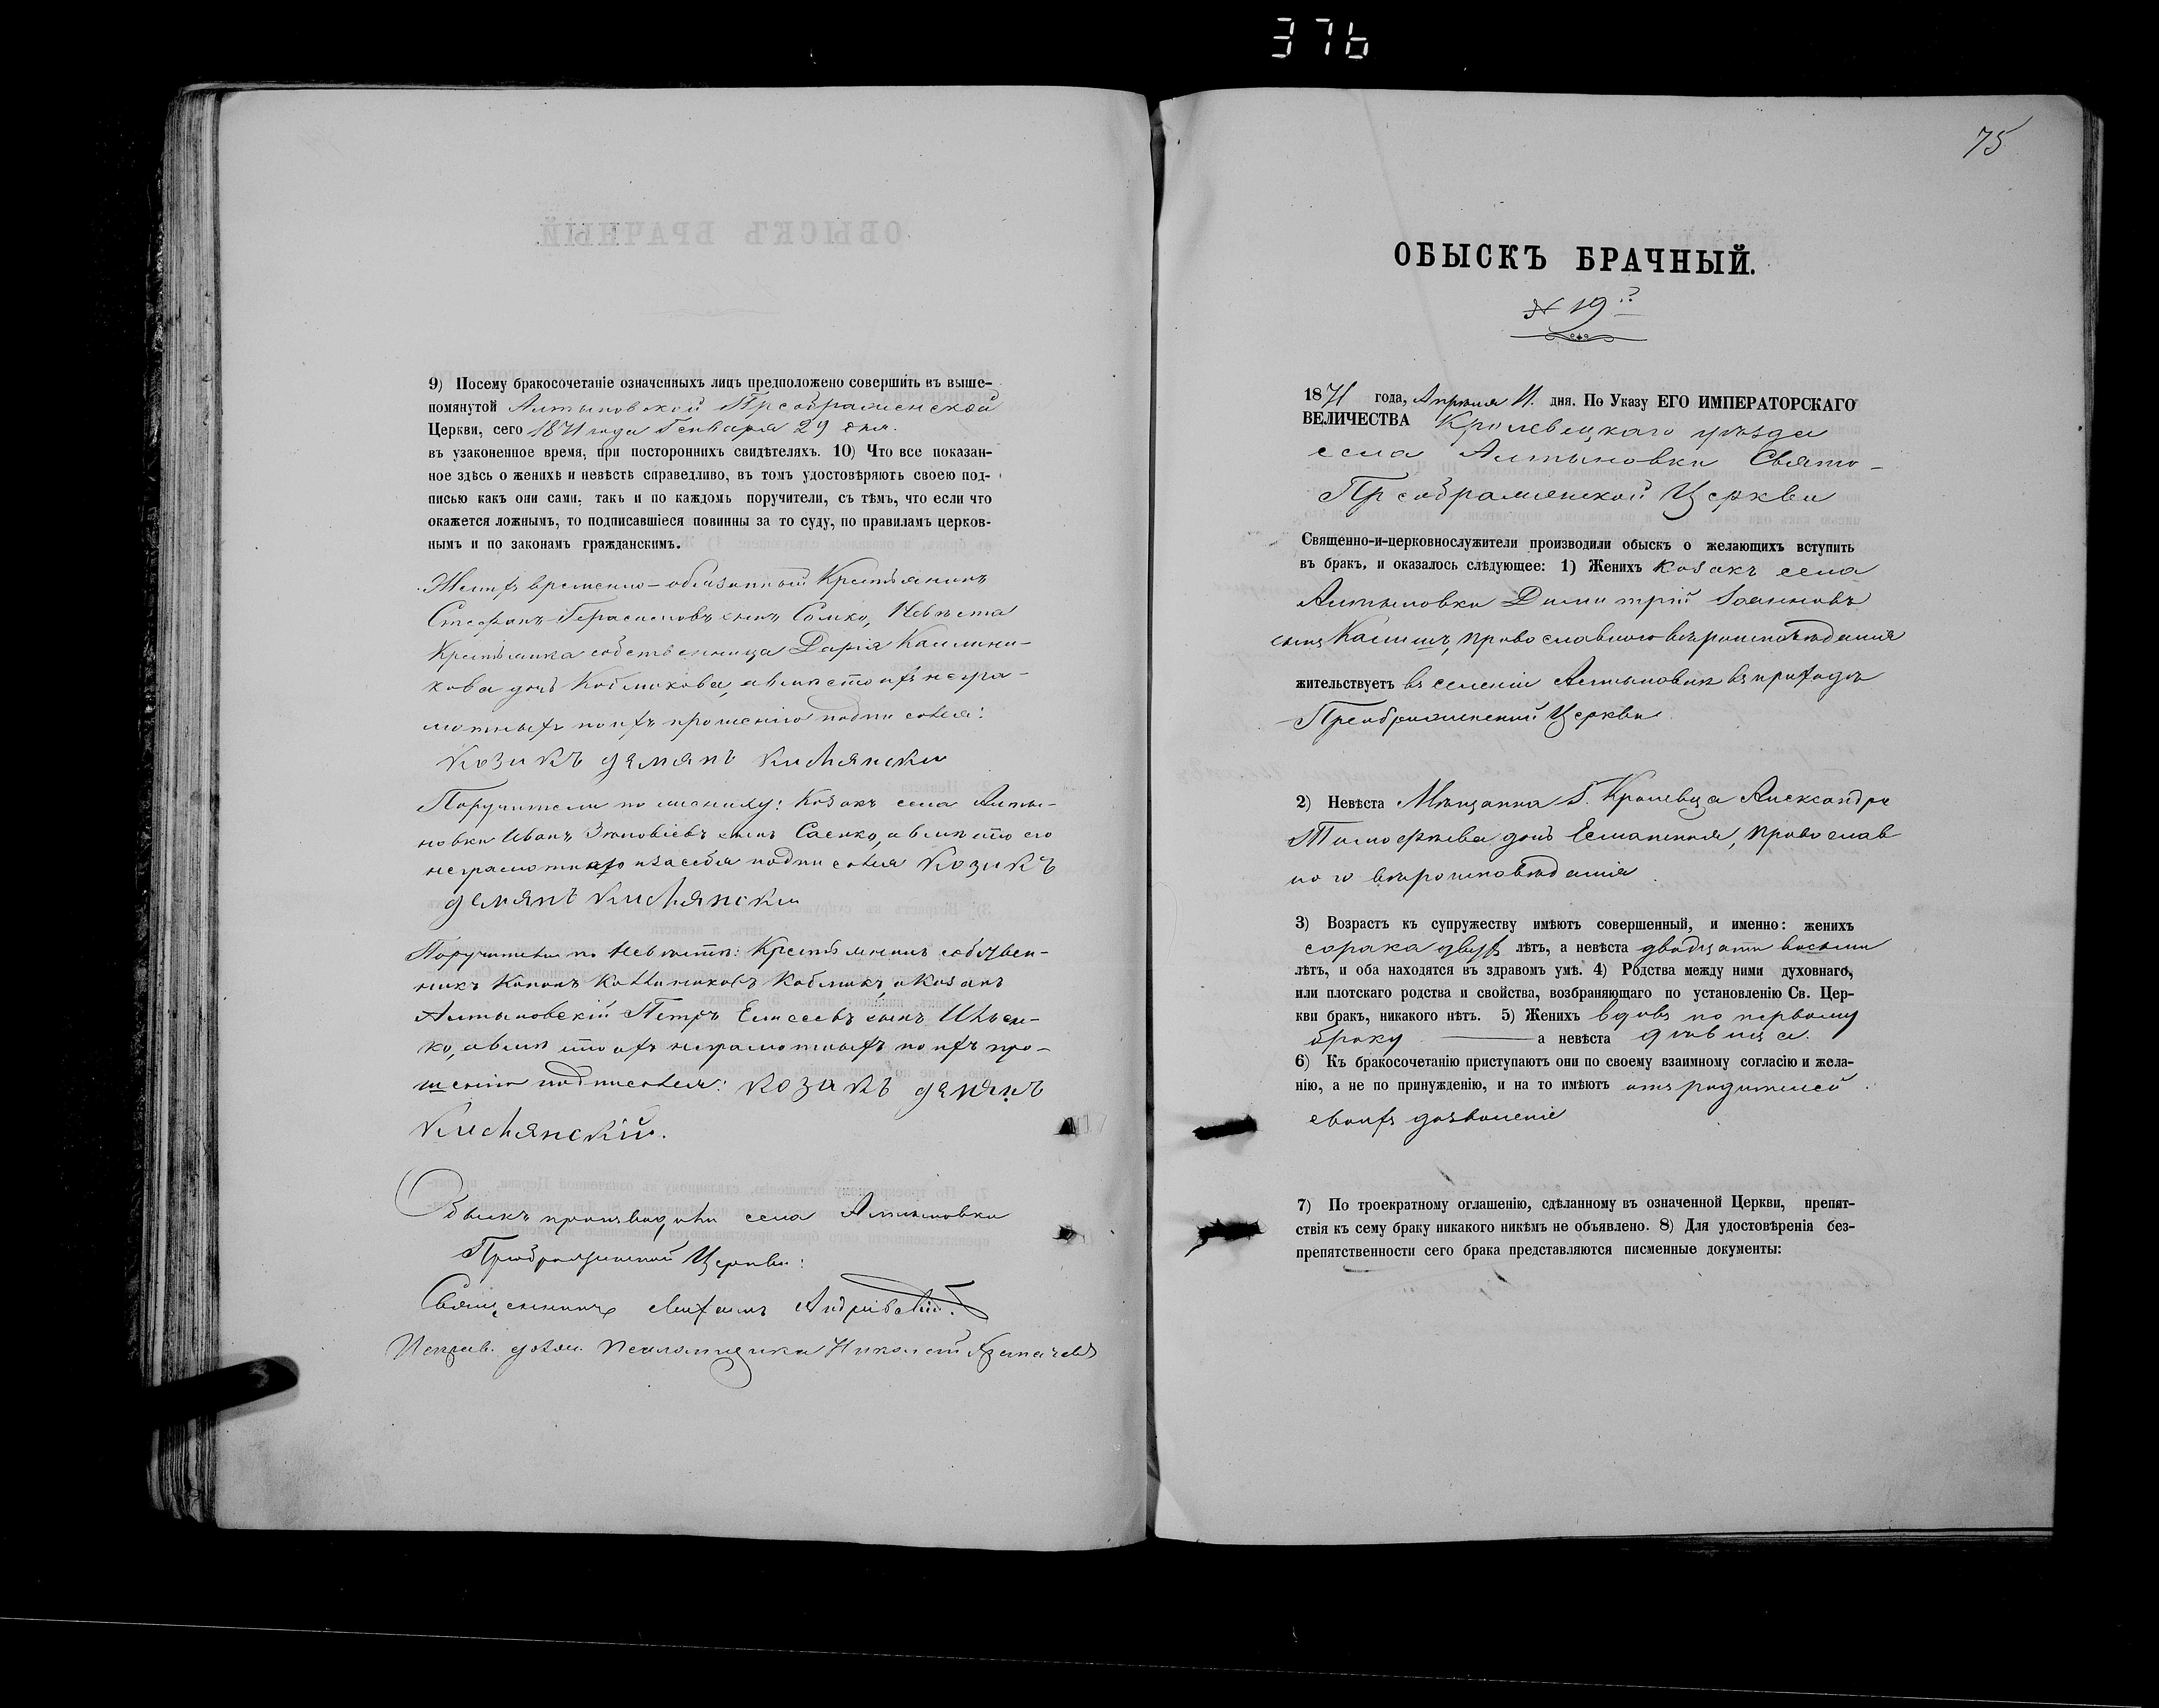 376
9) Посему бракосочетаніе означенныхъ лицъ предположено совершить въ выше-
помянутой Алтыновской Преображенской
Церкви, сего 1871 года Генваря 29 дня.
въ узаконенное время, при постороннихъ свидѣтеляхъ. 10) Что все показан-
ное здѣсь о женихѣ и невѣстѣ справедливо, въ томъ удостовѣряютъ своею под-
писью какъ они сами, такъ и по каждомъ поручители, съ тѣмъ, что если что
окажется ложнымъ, то подписавшіеся повинны за то суду, по правиламъ церков-
нымъ и по законамъ гражданскимъ.
Женихъ временно-обязанный Крестьянинъ
Стефанъ Герасимовъ сынъ Сомко, Невѣста
Крестьянка собственница Дарія
дочь а вмѣсто ихъ негра-
мотныхъ по ихъ прошенію подписался:
козакъ демянъ
Поручители по жениху: Козакъ села Алты-
новки Иванъ Зѣновіевъ сынъ Саенко, а вмѣсто его
неграмотнаго и за себя подписался козакъ
демянъ
Поручители по Невѣстѣ: Крестьянинъ собствен-
никъ Кононъ а Козакъ
Алтыновскій Петръ Елисеевъ сынъ
ко, а вмѣсто ихъ неграмотныхъ по ихъ про-
шенію подписался: козакъ демянъ
Обыскъ производили села Алтыновки
Преображенской Церкви:
Священникъ
Исправ. долж. Псаломщика Николай
75
ОБЫСКЪ БРАЧНЫЙ.
№ 19й
1871 года, Апрѣля 11. дня. По Указу ЕГО ИМПЕРАТОРСКАГО
ВЕЛИЧЕСТВА Кролевецкаго уѣзда
села Алтыновки Свято-
Преображенской Церкви
Священно-и-церковнослужители производили обыскъ о желающихъ вступить
въ бракъ, и оказалось слѣдующее: 1) Женихъ козакъ села
Алтыновки Димитрій Іоанновъ
сынъ православнаго вѣроисповѣданія
жительствуетъ въ селеніи Алтыновкѣ въ приходѣ
Преображенской Церкви
2) Невѣста Мѣщанка Г. Кролевца Александра
Тимофѣева дочь православ
наго вѣроисповѣданія
3) Возрастъ къ супружеству имѣютъ совершенный, и именно: женихъ
сорока двухъ лѣтъ, а невѣста двадцати восьми
лѣтъ, и оба находятся въ здравомъ умѣ. 4) Родства между ними духовнаго,
или плотскаго родства и свойства, возбраняющаго по установленію Св. Цер-
кви бракъ, никакого нѣтъ. 5) Женихъ вдовъ по первому
браку — а невѣста дѣвица.
6) Къ бракосочетанію приступаютъ они по своему взаимному согласію и жела-
нію, а не по принужденію, и на то имѣютъ отъ родителей
своихъ дозволеніе
7) По троекратному оглашенію, сдѣланному въ означенной Церкви, препят-
ствія къ сему браку никакого никѣмъ не объявлено. 8) Для удостовѣренія без-
препятственности сего брака представляются писменные документы: